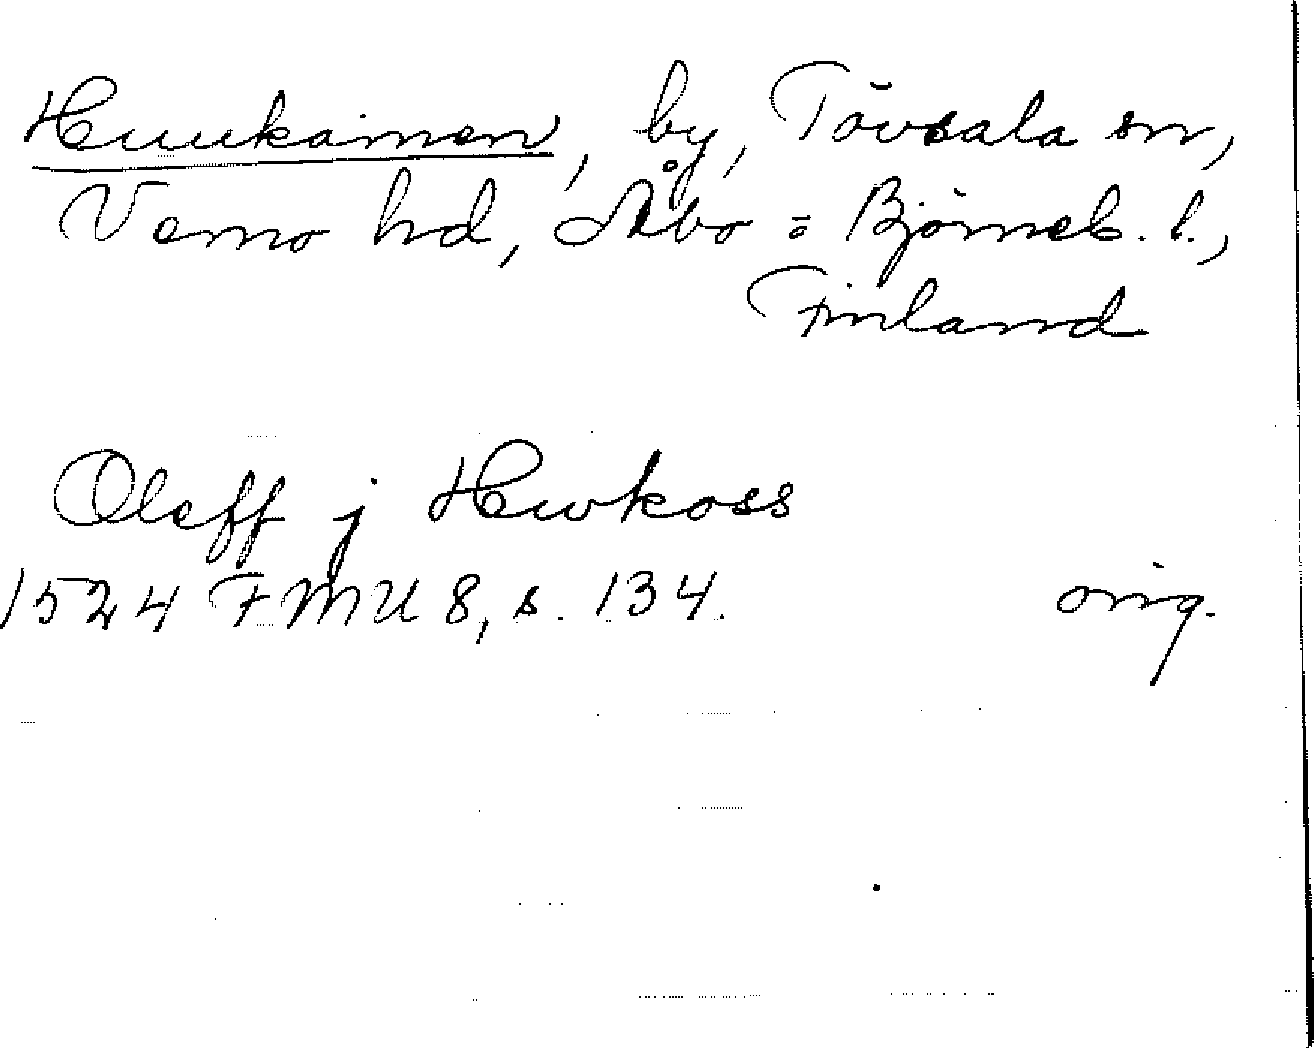 Huukainen, by, Tövsala sn,
Vemo hd, Åbo = Björneb. l.,
Finland
Oleff j Hwkoss
1524 FMU 8, s. 134.
orig.